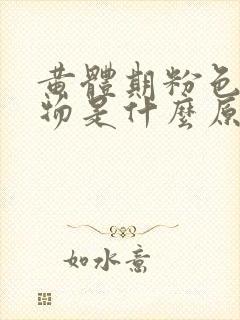 黄體期粉色
物是什麼原
如水意